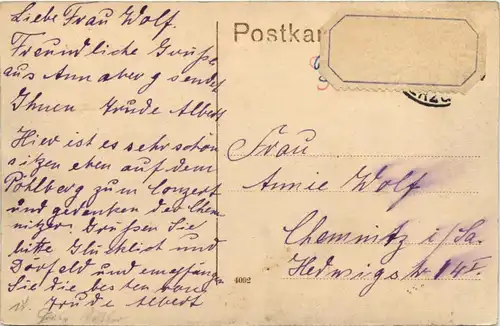 Liebe Frau Wolf
Freundliche Grüße
aus Annaberg sendet
Ihnen Trude Albert
Hier ist es sehr schön
sitzen eben auf dem
Pöhlberg zum Conzert
und gedenken der Chem
nitzer. Grüßen Sie
bitte Glücklist und
Dörfeld und empfangn
Sie die besten von
Trude Albert
Postkar
Frau
Annie Wolf
Chemnitz i/Sa.
Hedwigstr 14 I.
4092